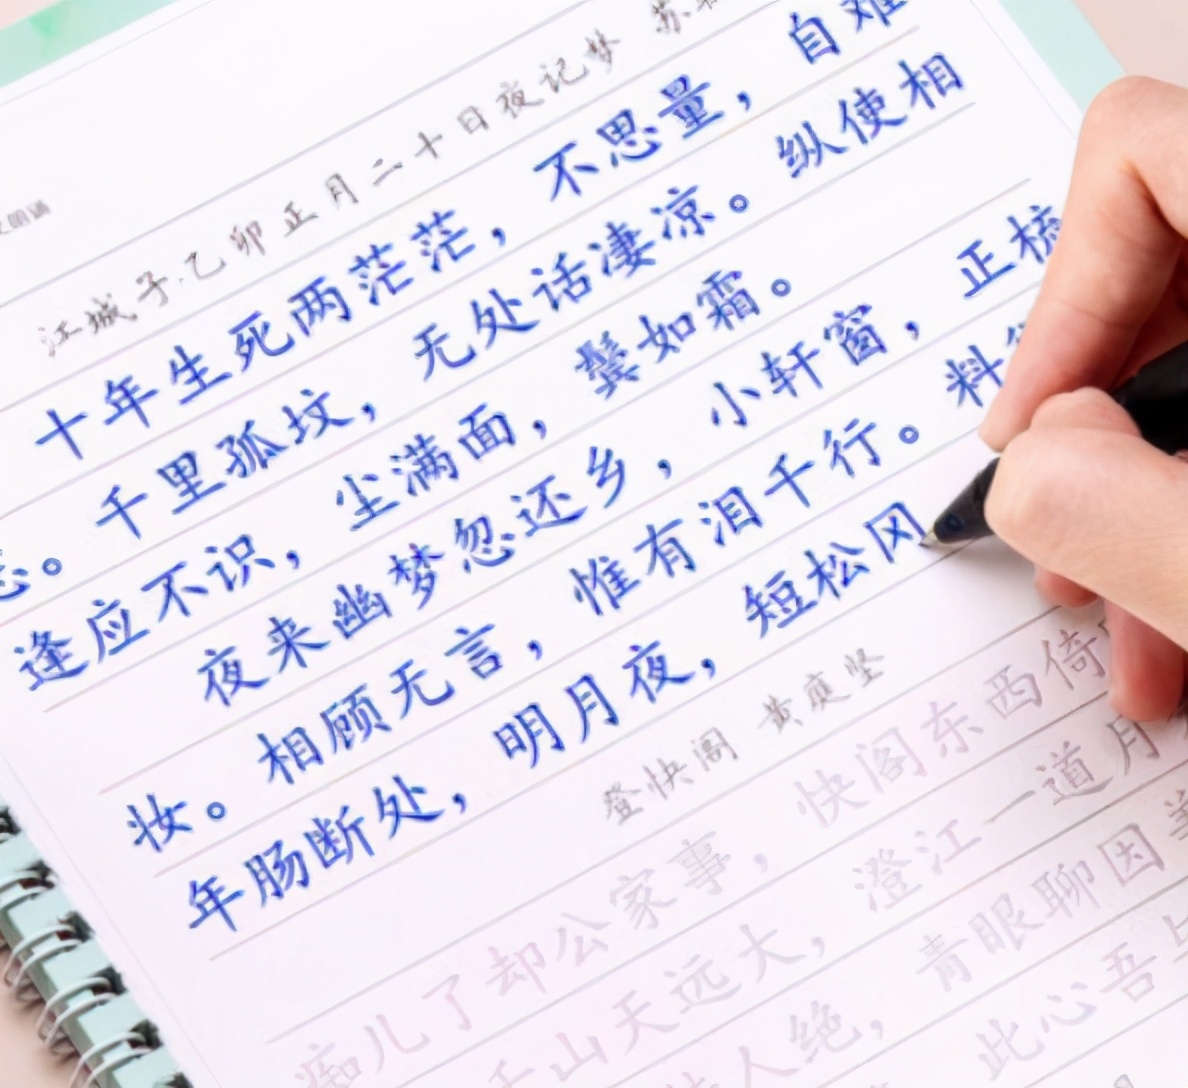 江城子·乙卯正月二十日夜记梦 苏
十年生死两茫茫，不思量，自难
忘。千里孤坟，无处话凄凉。纵使相
逢应不识，尘满面，鬓如霜。
夜来幽梦忽还乡，小轩窗，正梳
妆。相顾无言，惟有泪千行。料
年肠断处，明月夜，短松冈
登快阁 黄庭坚
痴儿了却公家事，快阁东西倚
千山天远大，澄江一道月
人绝，青眼聊因美
此心吾与